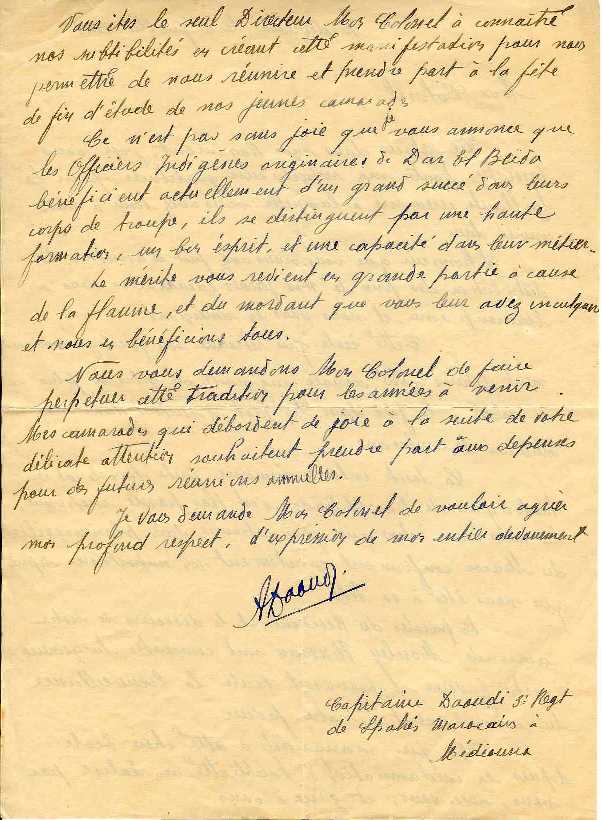 Vous êtes le seul Directeur Mon Colonel à connaitre
nos subtibilités en créant cette manifestation pour nous
permettre de nous réunire et prendre part à la fête
de fin d'étude de nos jeunes camarades
Ce n'est pas sans joie que je vous annonce que
les Officiers Indigènes originaires de Dar El Beïda
bénéficient actuellement d'un grand succé dans leurs
corps de troupe, ils se distinguent par une haute
formation, un bon ésprit, et une capacité dans leur métier.
Le mérite vous revient en grande partie à cause
de la flamme, et du mordant que vous leur avez inculquer
et nous en bénéficions tous.
Nous vous demandons Mon Colonel de faire
perpetuer cette tradition pour les années à venir
Mes camarades qui débordent de joie à la suite de votre
délicate attention souhaitent prendre part aux depenses
pour des futures réunions annuelles.
Je Vous demande Mon Colonel de vouloir agrier
mon profond respect, d'expression de mon entier devouement
ADaoudi
Capitaine Daoudi 3e Regt
de Spahis Marocains à
Médiouna